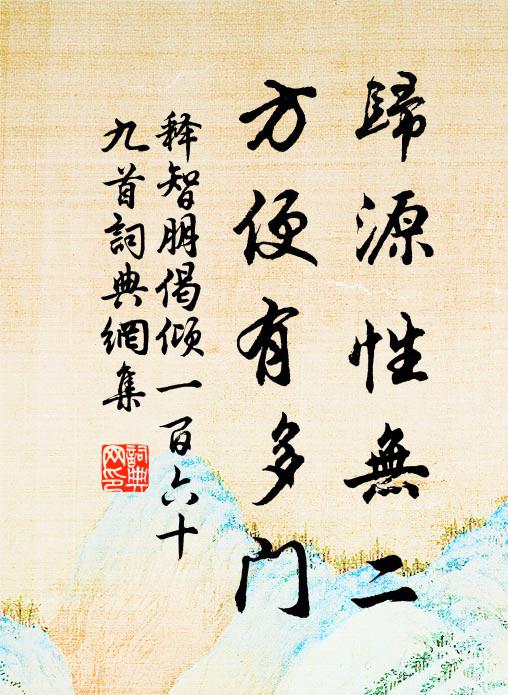 歸源性無二
方便有多門
释智朋偈傾一百六十
九首詞典網集
詞典
网印